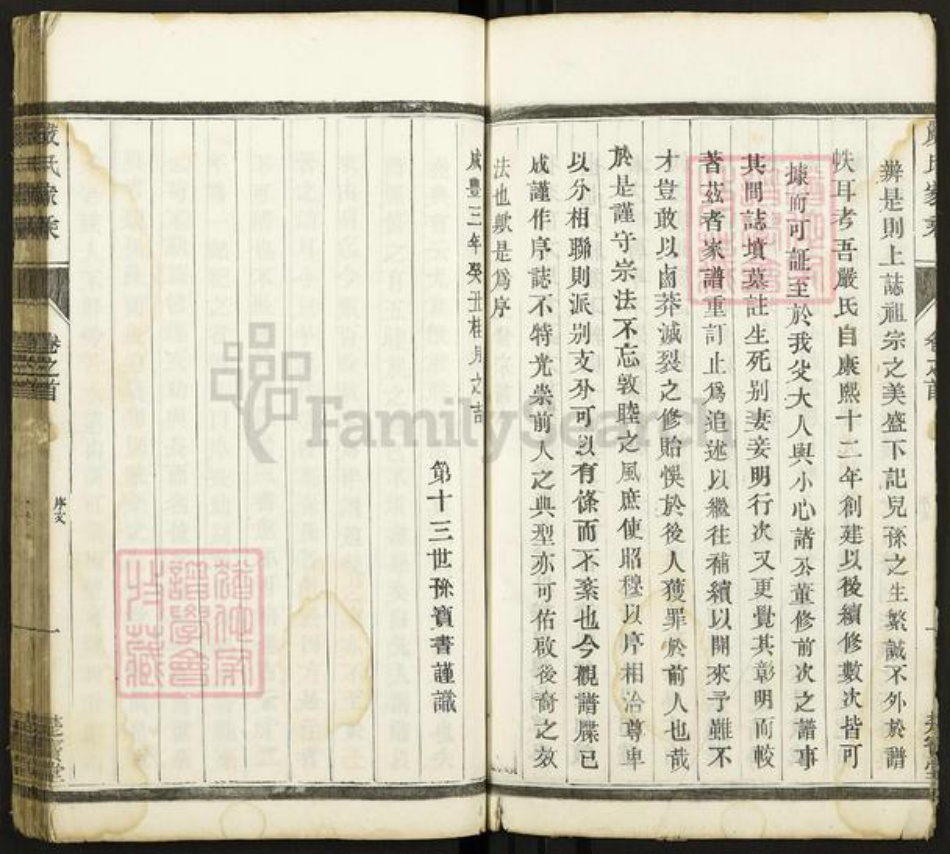 嚴氏家乘
卷之首
辨是則上誌祖宗之美盛下記兒孫之生繁誠不外於譜
帙耳考吾嚴氏自康熙十二年創建以後續修數次皆可
據而可証至於我父大人與小心諸公董修前次之譜事
其間誌墳墓註生死别妻妾明行次又更覺其彰明而較
著茲者家譜重訂止爲追述以繼往補續以開來予雖不
才豈敢以鹵莽滅裂之修貽悞於後人獲罪於前人也哉
於是謹守宗法不忘敦睦之風庶使昭穆以序相洽尊卑
以分相聯則派别支分可以有條而不紊也今觀譜牒已
成謹作序誌不特光崇前人之典型亦可佑啟後裔之效
法也歟是爲序
咸豊三年癸丑桂月之吉
第十三世孫寶書謹識
嚴氏家乘
卷之首
序文
一
FamilySearch